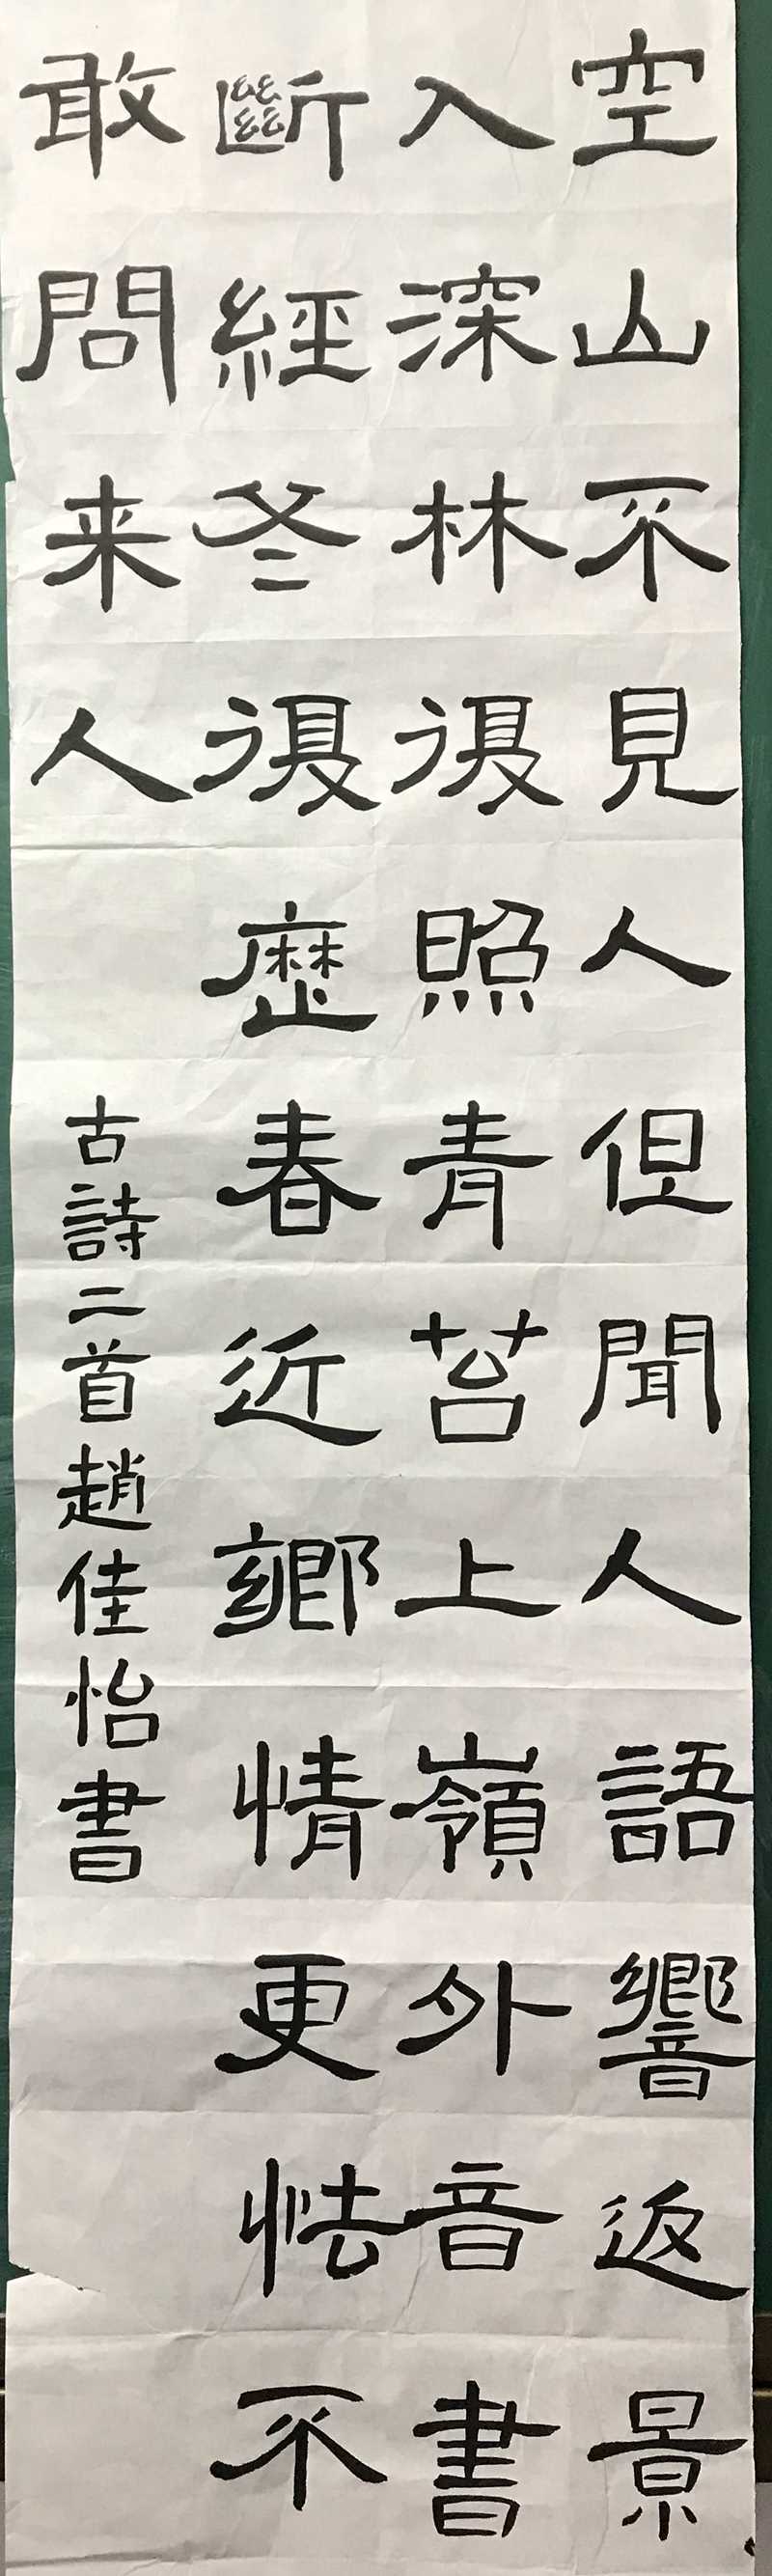 空山不見人但聞人語響返景
入深林復照青苔上嶺外音書
斷經冬復歷春近鄉情更怯不
敢問来人
古詩二首趙佳怡書